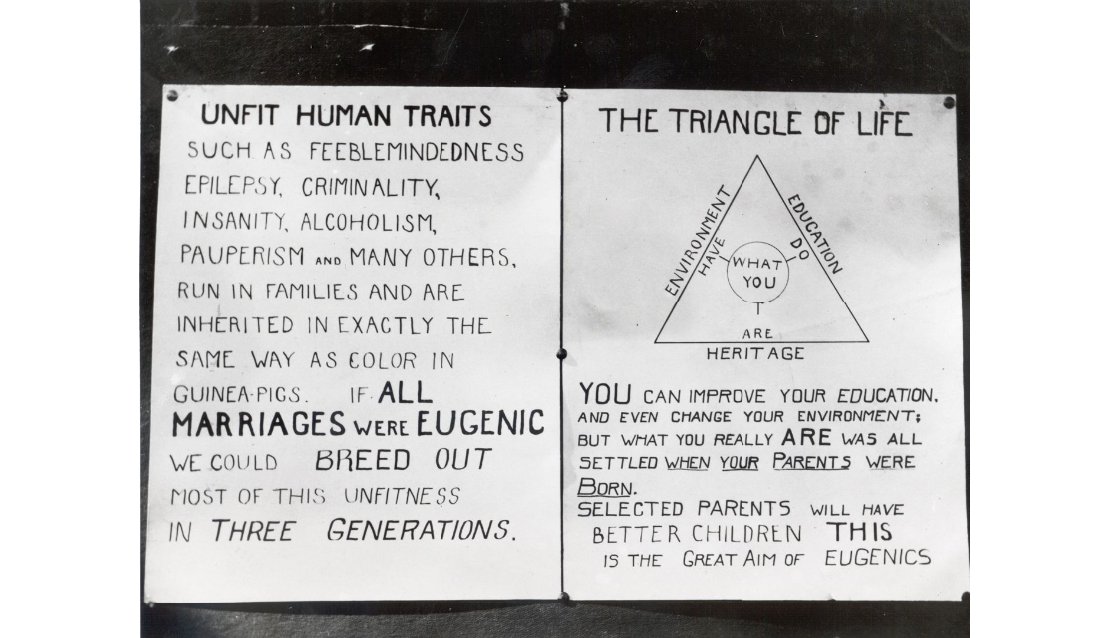 UNFIT HUMAN TRAITS
SUCH AS FEEBLEMINDEDNESS
EPILEPSY, CRIMINALITY,
INSANITY, ALCOHOLISM,
PAUPERISM AND MANY OTHERS,
RUN IN FAMILIES AND ARE
INHERITED IN EXACTLY THE
SAME WAY AS COLOR IN
GUINEA-PIGS. IF ALL
MARRIAGES WERE EUGENIC
WE COULD BREED OUT
MOST OF THIS UNFITNESS
IN THREE GENERATIONS.
THE TRIANGLE OF LIFE
ENVIRONMENT
EDUCATION
HAVE
DO
WHAT
YOU
ARE
HERITAGE
YOU CAN IMPROVE YOUR EDUCATION,
AND EVEN CHANGE YOUR ENVIRONMENT;
BUT WHAT YOU REALLY ARE WAS ALL
SETTLED WHEN YOUR PARENTS WERE
BORN.
SELECTED PARENTS WILL HAVE
BETTER CHILDREN THIS
IS THE GREAT AIM OF EUGENICS